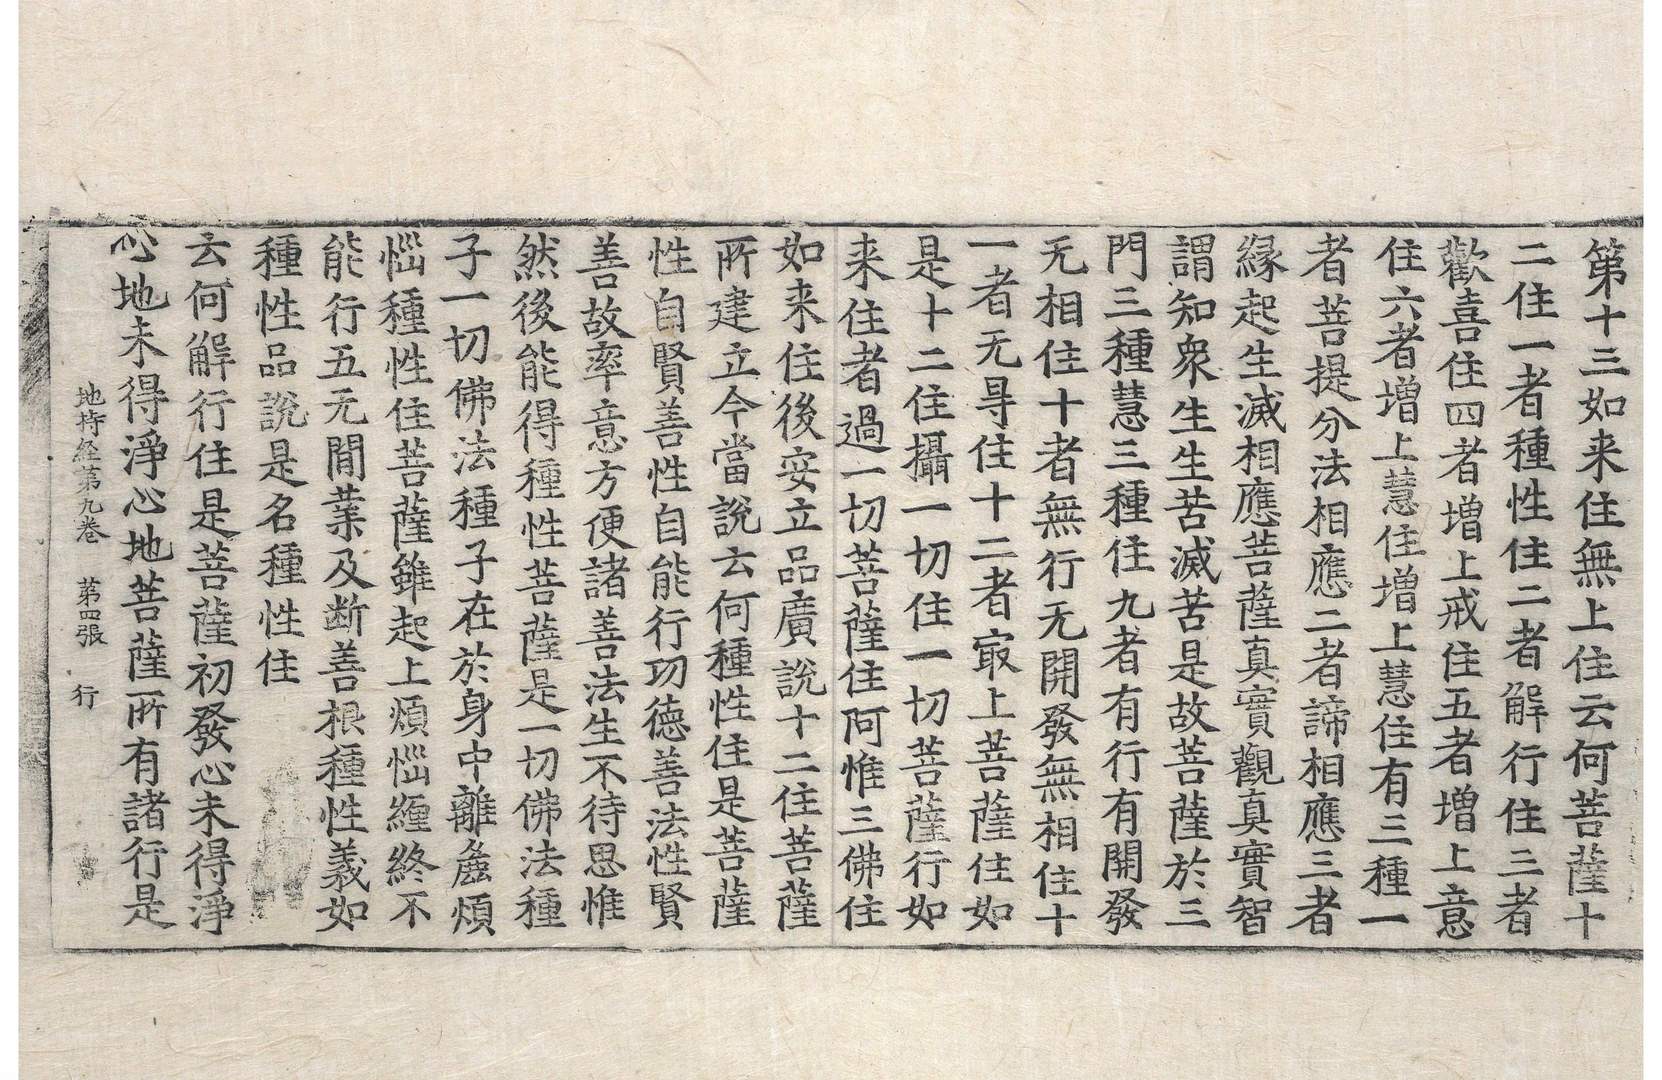 第十三如来住無上住云何菩薩十
二住一者種性住二者解行住三者
歡喜住四者增上戒住五者增上意
住六者增上慧住增上慧住有三種一
者菩提分法相應二者諦相應三者
緣起生滅相應菩薩真實觀真實智
謂知衆生生苦滅苦是故菩薩於三
門三種慧三種住九者有行有開發
无相住十者無行无開發無相住十
一者无㝵住十二者㝡上菩薩住如
是十二住攝一切住一切菩薩行如
来住者過一切菩薩住阿惟三佛住
如来住後安立品廣說十二住菩薩
所建立今當說云何種性住是菩薩
性自賢善性自能行功德善法性賢
善故率意方便諸善法生不待思惟
然後能得種性菩薩是一切佛法種
子一切佛法種子在於身中離麁煩
惱種性住菩薩雖起上煩惱纏終不
能行五无間業及断善根種性義如
種性品說是名種性住
云何解行住是菩薩初發心未得淨
心地未得淨心地菩薩所有諸行是
地持経第九卷 第四張 行